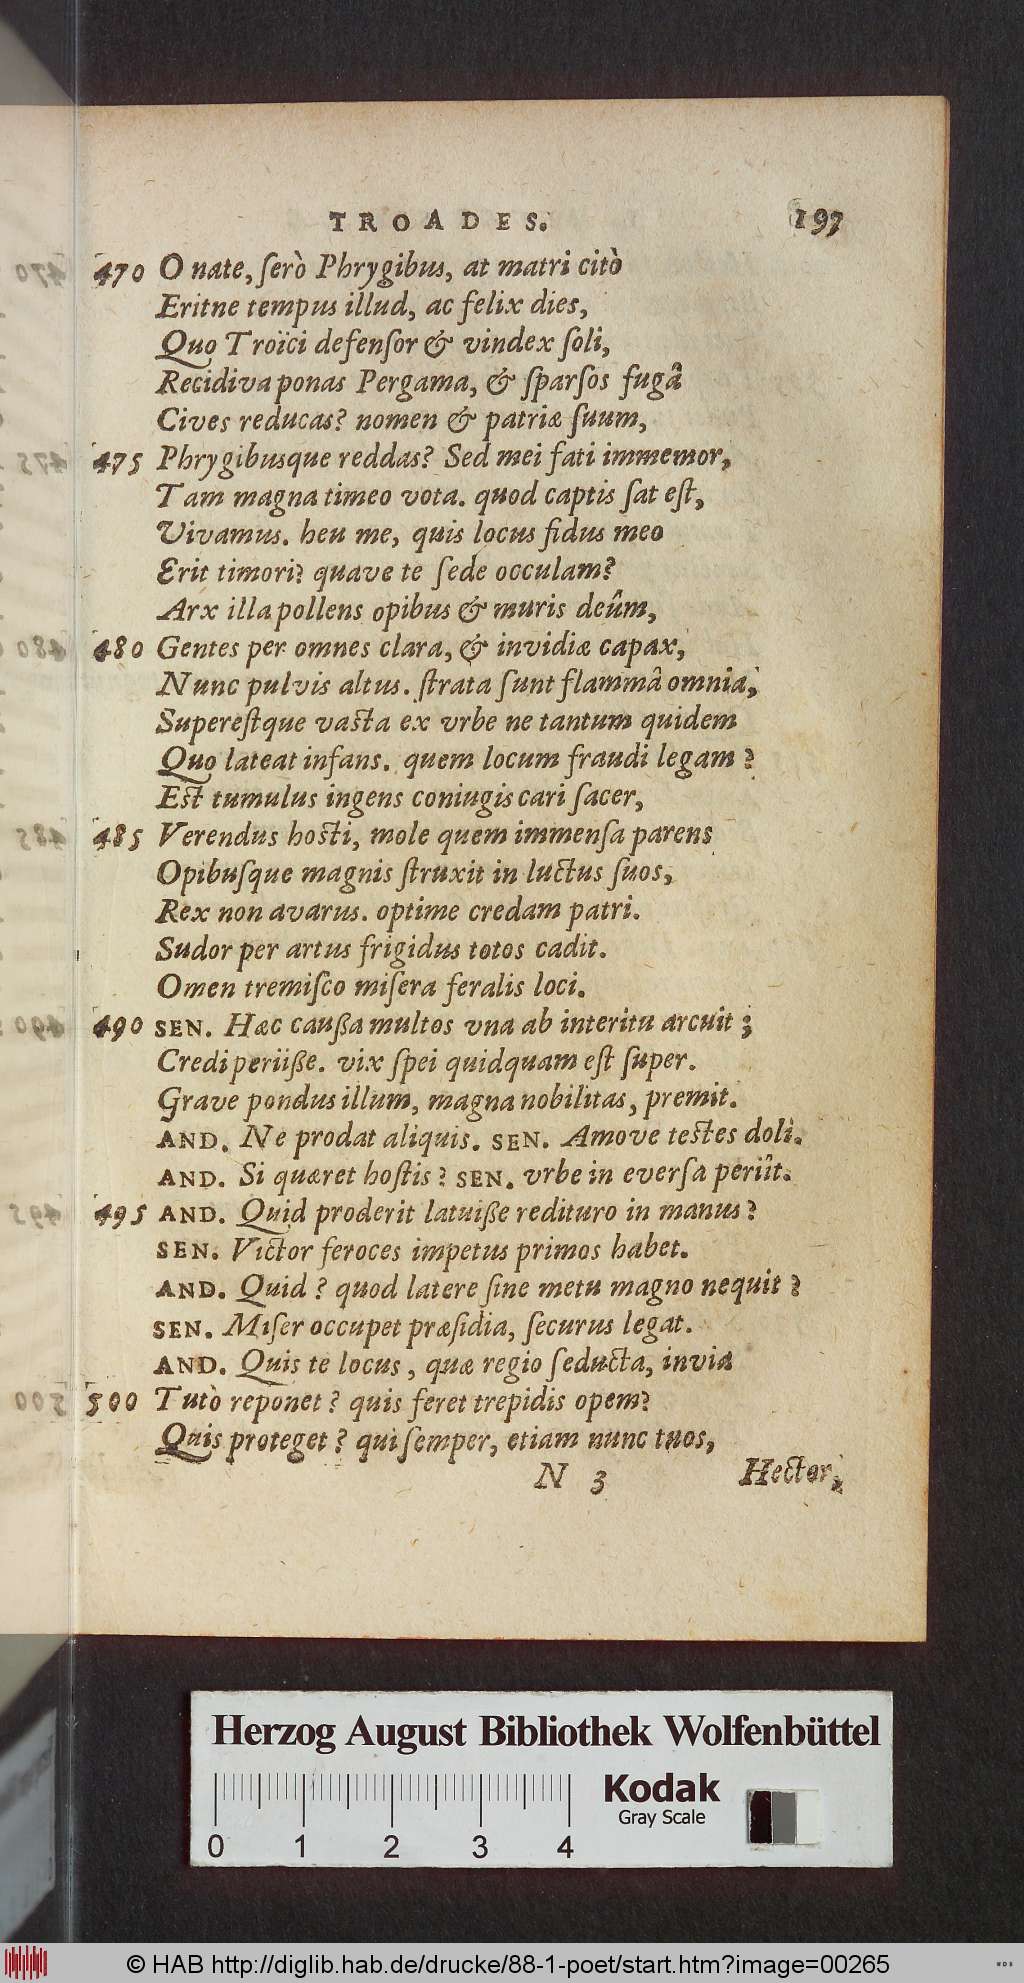 TROADES. 197
470 O nate, ſerò Phrygibus, at matri citò
Eritne tempus illud, ac felix dies,
Quo Troïci defenſor & vindex ſoli,
Recidiva ponas Pergama, & ſparſos fugâ
Cives reducas? nomen & patriæ ſuum,
475 Phrygibusque reddas? Sed mei fati immemor,
Tam magna timeo vota. quod captis ſat eſt,
Vivamus. heu me, quis locus fidus meo
Erit timori? quave te ſede occulam?
Arx illa pollens opibus & muris deûm,
480 Gentes per omnes clara, & invidiæ capax,
Nunc pulvis altus. ſtrata ſunt flammâ omnia;
Supereſtque vasta ex vrbe ne tantum quidem
Quo lateat infans. quem locum fraudi legam?
Est tumulus ingens coniugis cari ſacer,
485 Verendus hosti, mole quem immenſa parens
Opibuſque magnis ſtruxit in luctus ſuos,
Rex non avarus. optime credam patri.
Sudor per artus frigidus totos cadit.
Omen tremiſco miſera feralis loci.
490 SEN. Hæc cauſſa multos vna ab interitu arcuit;
Credi periiſſe. vix ſpei quidquam eſt ſuper.
Grave pondus illum, magna nobilitas, premit.
AND. Ne prodat aliquis. SEN. Amove testes doli.
AND. Si quæret hoſtis? SEN. vrbe in everſa periît.
495 AND. Quid proderit latuiſſe redituro in manus?
SEN. Victor feroces impetus primos habet.
AND. Quid? quod latere ſine metu magno nequit?
SEN. Miſer occupet præſidia, ſecurus legat.
AND. Quis te locus, quæ regio ſeducta, invia
500 Tutò reponet? quis feret trepidis opem?
Quis proteget? qui ſemper, etiam nunc tuos,
N 3 Hector,
Herzog August Bibliothek Wolfenbüttel
Kodak
Gray Scale
0 1 2 3 4
© HAB http://diglib.hab.de/drucke/88-1-poet/start.htm?image=00265